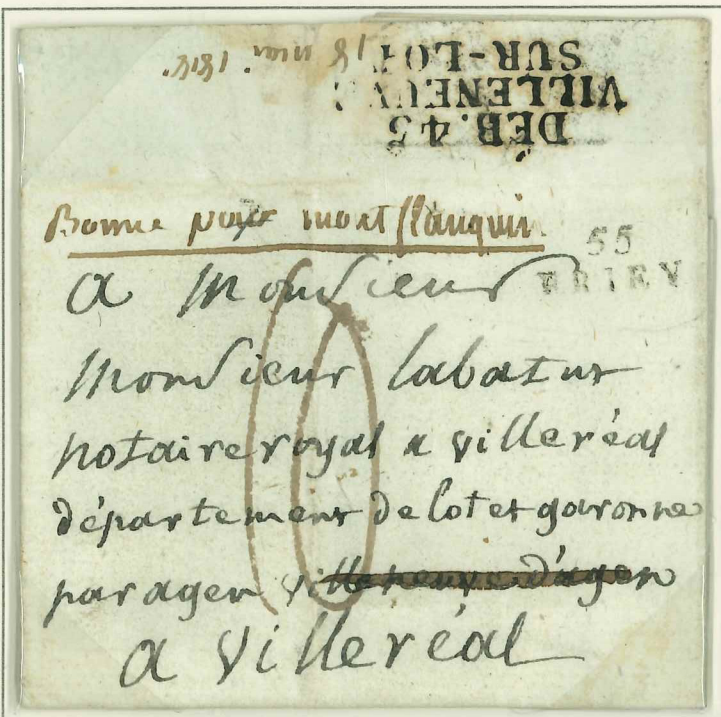 DÉB. 45
VILLENEUV
SUR-LOT
Bonne pour mont flanquin
55
BRIEY
a Monsieur
Monsieur labatut
notaire royal a villeréal
département de lot et garonne
par agen villeneuve d'agen
a Villeréal